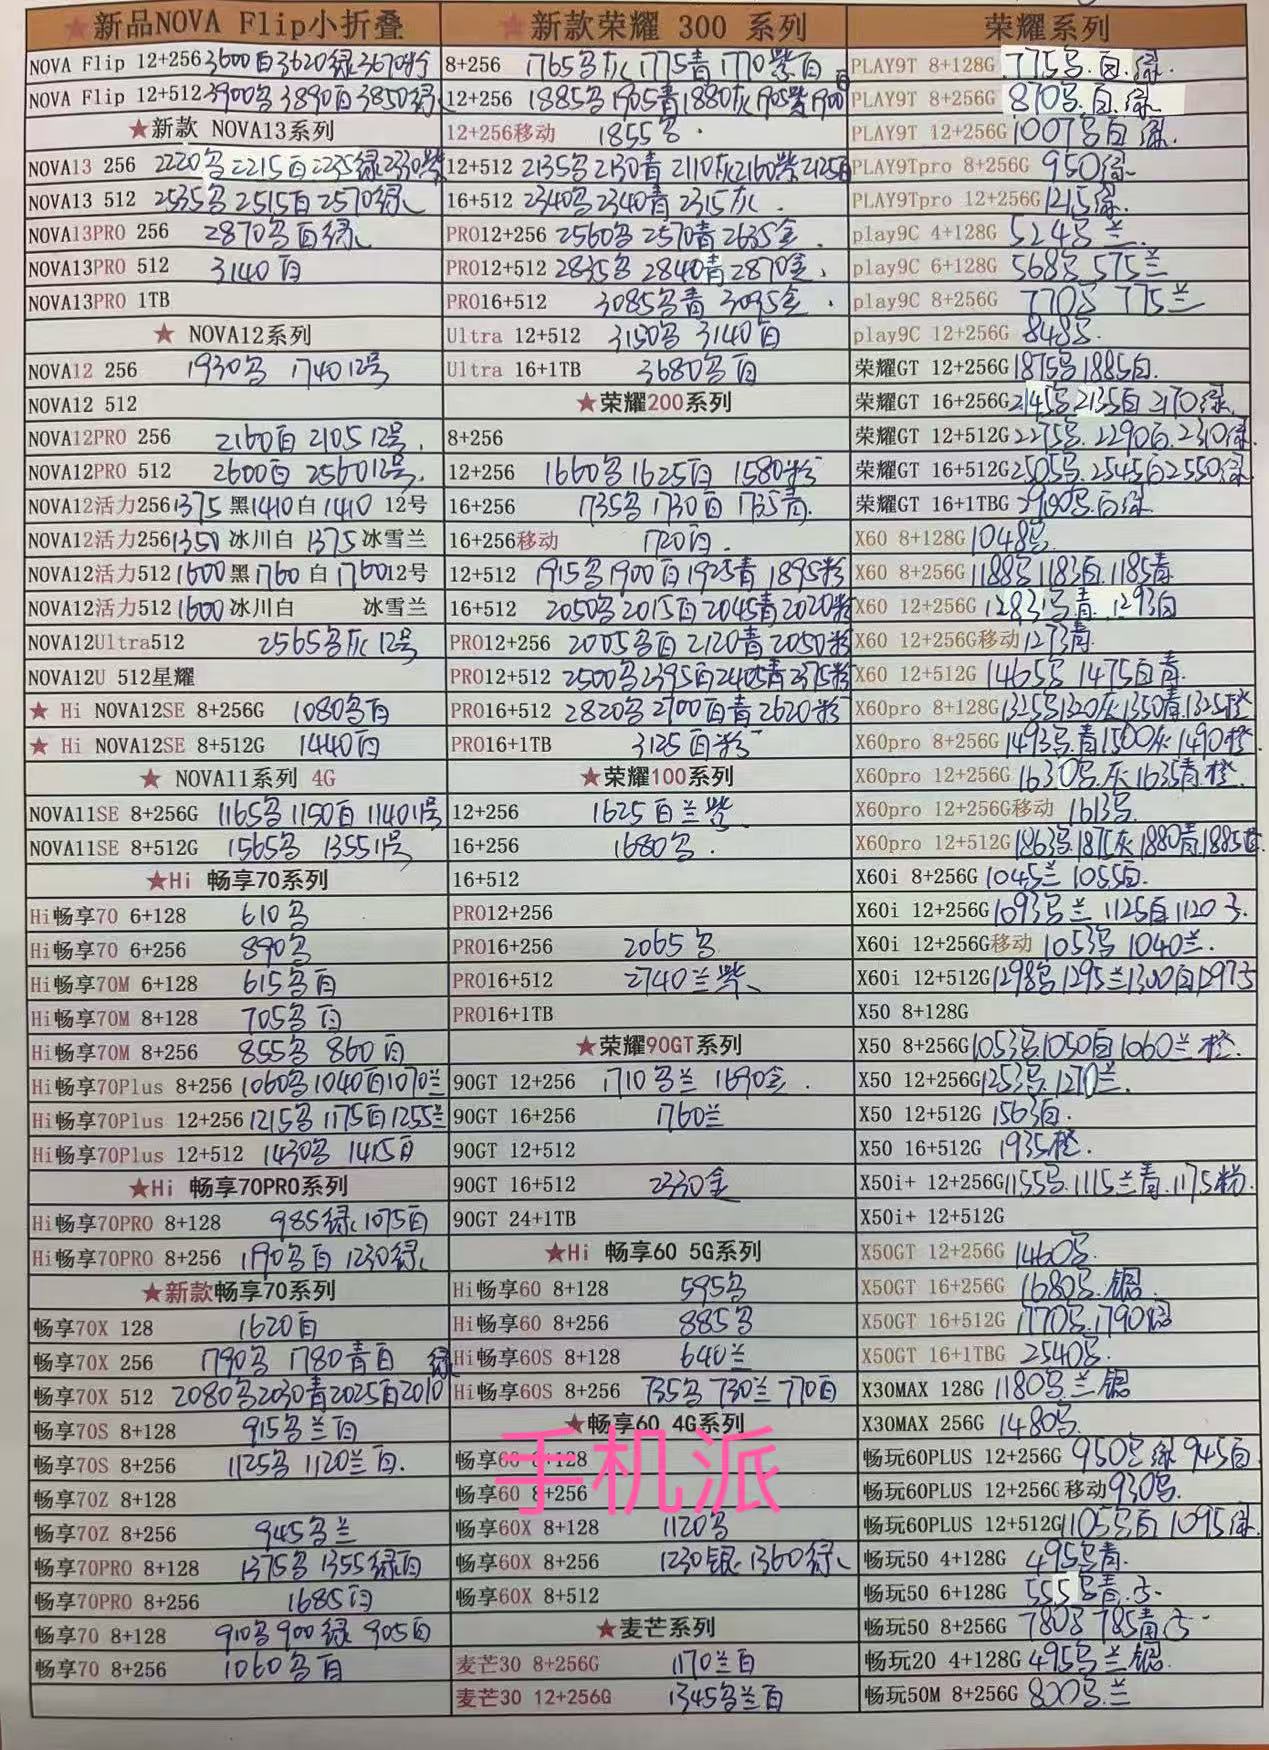 ★新品NOVA Flip小折叠
NOVA Flip 12+256 3600白3620绿3670粉
NOVA Flip 12+512 3900多3890白3850绿
★新款 NOVA13系列
NOVA13 256 2220多2215白2235绿2330紫
NOVA13 512 2535多2515白2570绿
NOVA13PRO 256 2870多白绿
NOVA13PRO 512 3140白
NOVA13PRO 1TB
★ NOVA12系列
NOVA12 256 1930多 1740 12号
NOVA12 512
NOVA12PRO 256 2160白 2105 12号
NOVA12PRO 512 2600白 2560 12号
NOVA12活力256 1375 黑1410白1410 12号
NOVA12活力256 1350 冰川白 1375 冰雪兰
NOVA12活力512 1600黑1760 白 1760 12号
NOVA12活力512 1600 冰川白 冰雪兰
NOVA12Ultra512 2565多灰 12号
NOVA12U 512星耀
★ Hi NOVA12SE 8+256G 1080多白
★ Hi NOVA12SE 8+512G 1440白
★ NOVA11系列 4G
NOVA11SE 8+256G 1165多1150白1140 11号
NOVA11SE 8+512G 1565多 1355 11号
★Hi 畅享70系列
Hi畅享70 6+128 610多
Hi畅享70 6+256 890多
Hi畅享70M 6+128 615多白
Hi畅享70M 8+128 705多白
Hi畅享70M 8+256 855多 860白
Hi畅享70Plus 8+256 1060多1040白1070兰
Hi畅享70Plus 12+256 1215多1175白1255兰
Hi畅享70Plus 12+512 1430多 1415白
★Hi 畅享70PRO系列
Hi畅享70PRO 8+128 985绿1075白
Hi畅享70PRO 8+256 1190多白 1230绿
★新款畅享70系列
畅享70X 128 1620白
畅享70X 256 1790多 1780青白 绿
畅享70X 512 2080多2030青2025白2010
畅享70S 8+128 915多兰白
畅享70S 8+256 1125多 1120兰白.
畅享70Z 8+128
畅享70Z 8+256 945多兰
畅享70PRO 8+128 1375多 1355绿白
畅享70PRO 8+256 1685白
畅享70 8+128 910多900绿 905白
畅享70 8+256 1060多白
★新款荣耀 300 系列
8+256 1765多灰1775青1770紫白
12+256 1885多1905青1880灰1905紫1900白
12+256移动 1855多.
12+512 2135多2130青2110灰2160紫2125白
16+512 2340多2340青2315灰.
PRO12+256 2560多2570青2635金.
PRO12+512 2835多2840青2870金.
PRO16+512 3085多青 3095金.
Ultra 12+512 3150多 3140白
Ultra 16+1TB 3680多白
★荣耀200系列
8+256
12+256 1660多1625白 1580粉
16+256 1735多1730白 1735青.
16+256移动 1720白.
12+512 1915多1900白1925青1895粉
16+512 2050多2015白2045青2020粉
PRO12+256 2005多白 2120青2050粉
PRO12+512 2500多2395白2405青2375粉
PRO16+512 2820多2700白青2620粉
PRO16+1TB 3125白粉
★荣耀100系列
12+256 1625白兰紫
16+256 1680多.
16+512
PRO12+256
PRO16+256 2065多
PRO16+512 2740兰紫
PRO16+1TB
★荣耀90GT系列
90GT 12+256 1710多兰 1690金.
90GT 16+256 1760兰
90GT 12+512
90GT 16+512 2330金
90GT 24+1TB
★Hi 畅享60 5G系列
Hi畅享60 8+128 595多
Hi畅享60 8+256 885多
Hi畅享60S 8+128 640兰
Hi畅享60S 8+256 735多730兰770白
★畅享60 4G系列
畅享60 8+128
畅享60 8+256
畅享60X 8+128 1120多
畅享60X 8+256 1230银1360绿
畅享60X 8+512
★麦芒系列
麦芒30 8+256G 1170兰白
麦芒30 12+256G 1345多兰白
荣耀系列
PLAY9T 8+128G 775多.白.绿
PLAY9T 8+256G 870多.白.绿
PLAY9T 12+256G 1007多白绿.
PLAY9Tpro 8+256G 950绿
PLAY9Tpro 12+256G 1215绿
play9C 4+128G 524多兰
play9C 6+128G 568多575兰
play9C 8+256G 770多 775兰
play9C 12+256G 848多.
荣耀GT 12+256G 1875多1885白.
荣耀GT 16+256G 2145多2135白2170绿
荣耀GT 12+512G 2275多.2290白.2310绿
荣耀GT 16+512G 2505多.2545白2550绿
荣耀GT 16+1TBG 2900多白绿
X60 8+128G 1048多
X60 8+256G 1188多1183白.1185青
X60 12+256G 1283多青.1293白
X60 12+256G移动 1273青.
X60 12+512G 1465多 1475白青
X60pro 8+128G 1325多1320灰1350青1325橙
X60pro 8+256G 1493多.青1500灰1490橙
X60pro 12+256G 1630多.灰1635青.橙.
X60pro 12+256G移动 1613多
X60pro 12+512G 1863多1875灰1880青1885橙
X60i 8+256G 1045兰1055白.
X60i 12+256G 1093多兰 1125白1120
X60i 12+256G移动 1053多1040兰.
X60i 12+512G 1298多1295兰1300白1297
X50 8+128G
X50 8+256G 1053多1050白1060兰.橙.
X50 12+256G 1253多.1270兰.
X50 12+512G 1563白.
X50 16+512G 1935橙.
X50i+ 12+256G 1155多.1115兰青.1175粉.
X50i+ 12+512G
X50GT 12+256G 1460多.
X50GT 16+256G 1680多.银
X50GT 16+512G 1770多.1790银
X50GT 16+1TBG 2540多.
X30MAX 128G 1180多兰银
X30MAX 256G 1480多
畅玩60PLUS 12+256G 950多绿945白
畅玩60PLUS 12+256G移动 930多.
畅玩60PLUS 12+512G 1105多白1095绿.
畅玩50 4+128G 495多青.
畅玩50 6+128G 555多青.
畅玩50 8+256G 780多785青
畅玩20 4+128G 495多兰银.
畅玩50M 8+256G 800多.兰
手机派